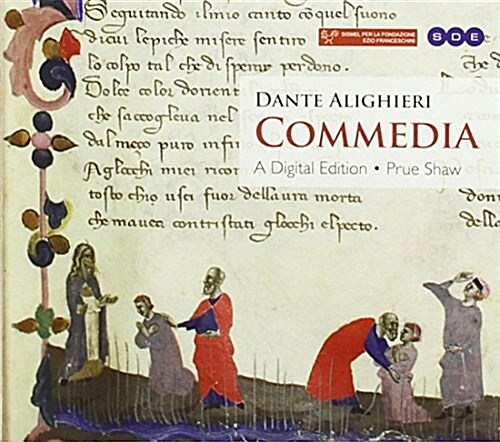 Seguitando ilmio canto cōquel fuono
dicui lepiche misere sentiro
lo colpo tal che disperar perdono.
Dolce color dorient
che saccoglieva nel
dalmeço puro infino
Aglocchi miei ricom
tosto chio usci fuor dellaura morta
che mavea contristati glocchi elpecto.
SISMEL PER LA FONDAZIONE
EZIO FRANCESCHINI
SDE
DANTE ALIGHIERI
COMMEDIA
A Digital Edition • Prue Shaw